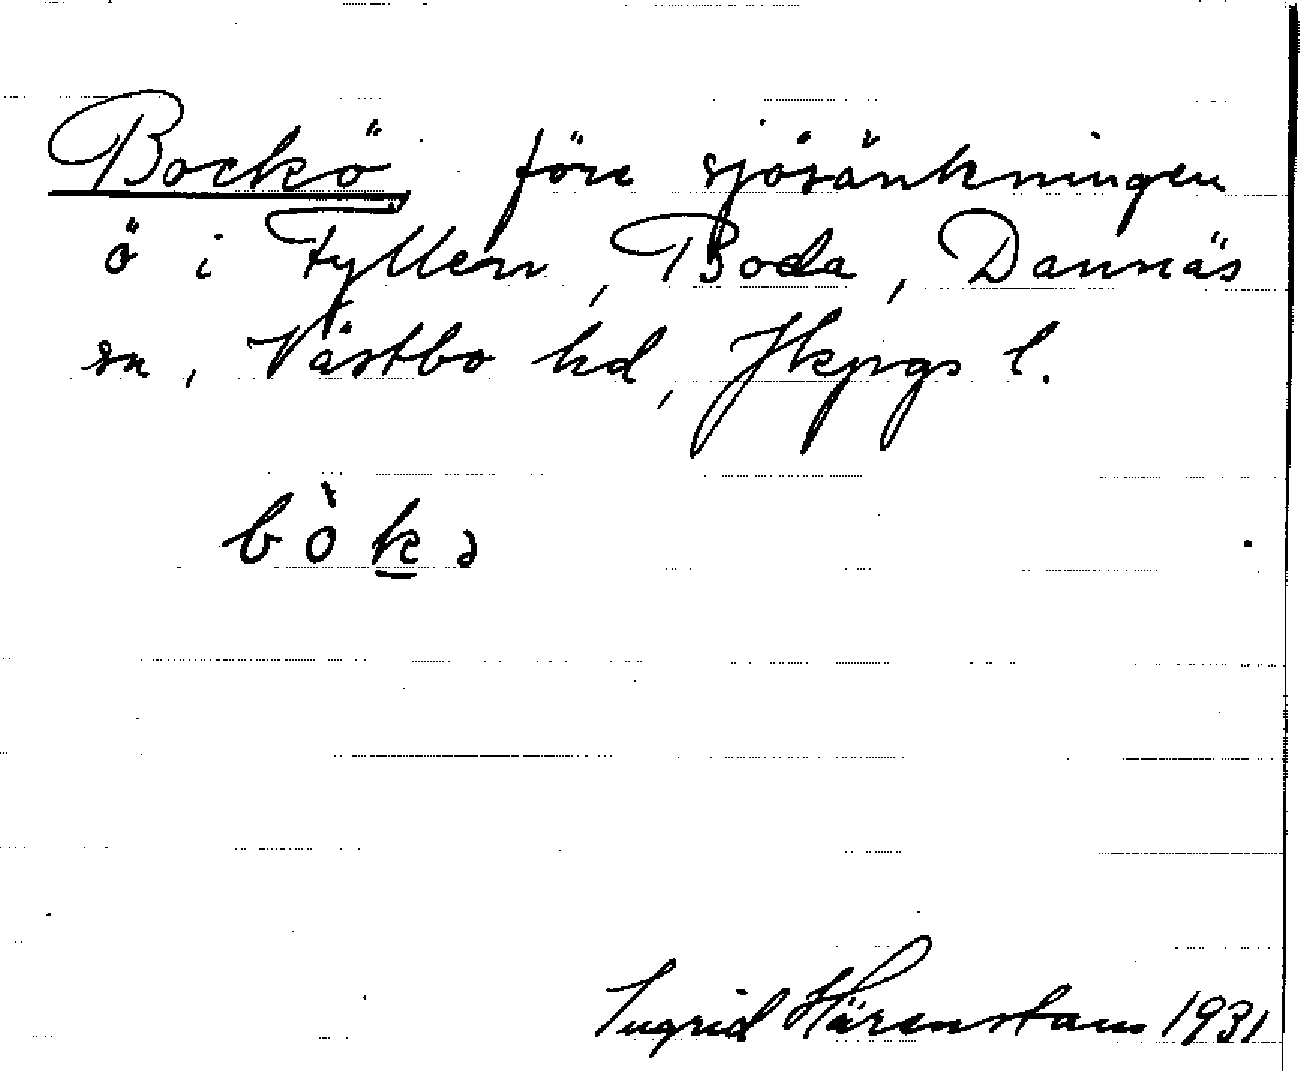 Bockö före sjösänkningen
ö i Fyllen, Boda, Dannäs
sn, Västbo hd, Jkpgs l.
bòkə
Ingrid Härenstam 1931